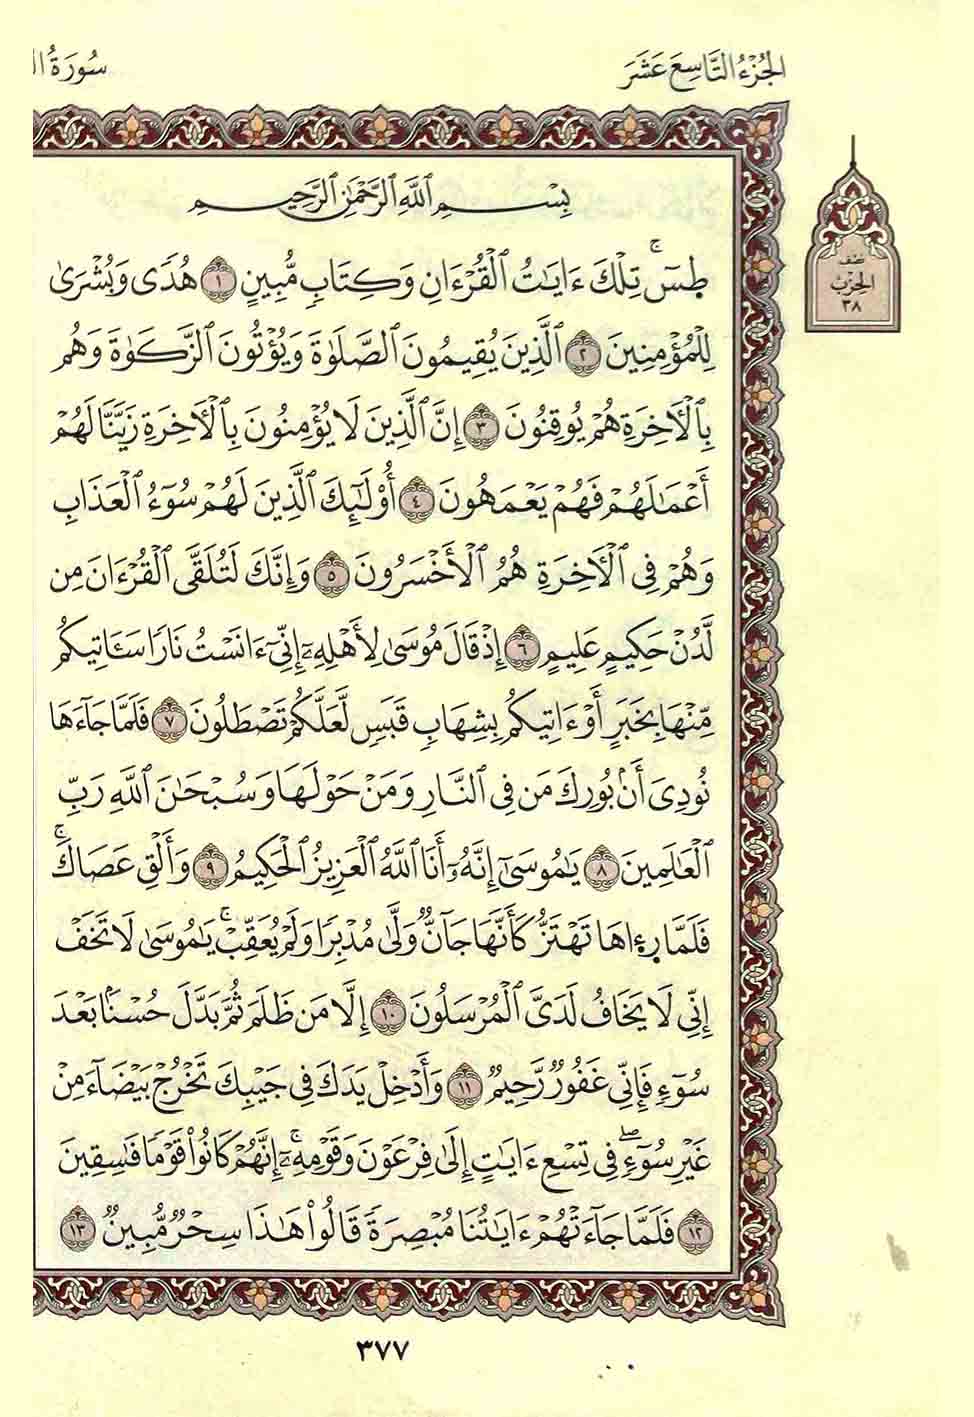 الجُزْءُ التَّاسِعَ عَشَرَ
سُورَةُ
نصف
الحِزْبِ
٣٨
بِسْمِ ٱللَّهِ ٱلرَّحْمَٰنِ ٱلرَّحِيمِ
طسٓۚ تِلْكَ ءَايَٰتُ ٱلْقُرْءَانِ وَكِتَابٍ مُّبِينٍ ١ هُدًى وَبُشْرَىٰ
لِلْمُؤْمِنِينَ ٢ ٱلَّذِينَ يُقِيمُونَ ٱلصَّلَوٰةَ وَيُؤْتُونَ ٱلزَّكَوٰةَ وَهُم
بِٱلْءَاخِرَةِ هُمْ يُوقِنُونَ ٣ إِنَّ ٱلَّذِينَ لَا يُؤْمِنُونَ بِٱلْءَاخِرَةِ زَيَّنَّا لَهُمْ
أَعْمَٰلَهُمْ فَهُمْ يَعْمَهُونَ ٤ أُوْلَٰٓئِكَ ٱلَّذِينَ لَهُمْ سُوٓءُ ٱلْعَذَابِ
وَهُمْ فِى ٱلْءَاخِرَةِ هُمُ ٱلْأَخْسَرُونَ ٥ وَإِنَّكَ لَتُلَقَّى ٱلْقُرْءَانَ مِن
لَّدُنْ حَكِيمٍ عَلِيمٍ ٦ إِذْ قَالَ مُوسَىٰ لِأَهْلِهِۦٓ إِنِّىٓ ءَانَسْتُ نَارًا سَـَٔاتِيكُم
مِّنْهَا بِخَبَرٍ أَوْ ءَاتِيكُم بِشِهَابٍ قَبَسٍ لَّعَلَّكُمْ تَصْطَلُونَ ٧ فَلَمَّا جَآءَهَا
نُودِىَ أَنۢ بُورِكَ مَن فِى ٱلنَّارِ وَمَنْ حَوْلَهَا وَسُبْحَٰنَ ٱللَّهِ رَبِّ
ٱلْعَٰلَمِينَ ٨ يَٰمُوسَىٰٓ إِنَّهُۥٓ أَنَا ٱللَّهُ ٱلْعَزِيزُ ٱلْحَكِيمُ ٩ وَأَلْقِ عَصَاكَۚ
فَلَمَّا رَءَاهَا تَهْتَزُّ كَأَنَّهَا جَآنٌّ وَلَّىٰ مُدْبِرًا وَلَمْ يُعَقِّبْۚ يَٰمُوسَىٰ لَا تَخَفْ
إِنِّى لَا يَخَافُ لَدَىَّ ٱلْمُرْسَلُونَ ١٠ إِلَّا مَن ظَلَمَ ثُمَّ بَدَّلَ حُسْنًۢا بَعْدَ
سُوٓءٍ فَإِنِّى غَفُورٌ رَّحِيمٌ ١١ وَأَدْخِلْ يَدَكَ فِى جَيْبِكَ تَخْرُجْ بَيْضَآءَ مِنْ
غَيْرِ سُوٓءٍۖ فِى تِسْعِ ءَايَٰتٍ إِلَىٰ فِرْعَوْنَ وَقَوْمِهِۦٓۚ إِنَّهُمْ كَانُواْ قَوْمًا فَٰسِقِينَ
١٢ فَلَمَّا جَآءَتْهُمْ ءَايَٰتُنَا مُبْصِرَةً قَالُواْ هَٰذَا سِحْرٌ مُّبِينٌ ١٣
٣٧٧